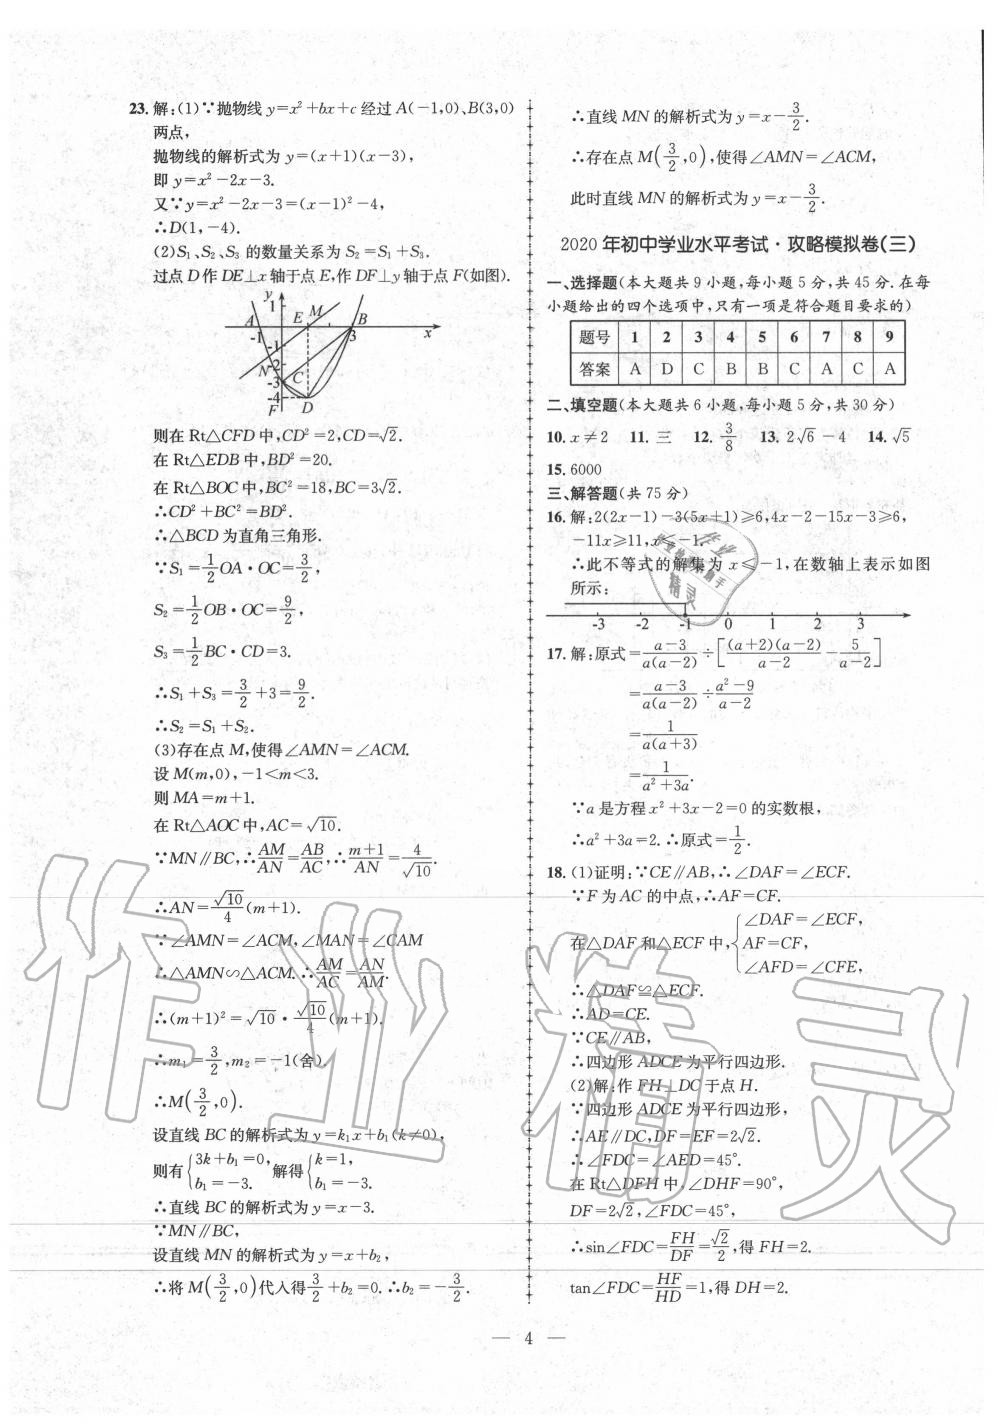 23. 解:(1)∵抛物线 y=x²+bx+c 经过 A(-1,0)、B(3,0)
两点,
抛物线的解析式为 y=(x+1)(x-3),
即 y=x²-2x-3.
又∵y=x²-2x-3=(x-1)²-4,
∴D(1,-4).
(2)S₁、S₂、S₃ 的数量关系为 S₂=S₁+S₃.
过点 D 作 DE⊥x 轴于点 E,作 DF⊥y 轴于点 F(如图).
y
1
A E M B
-1 3 x
-1
N -2
-3 C
-4
F D
则在 Rt△CFD 中,CD²=2,CD=√2.
在 Rt△EDB 中,BD²=20.
在 Rt△BOC 中,BC²=18,BC=3√2.
∴CD²+BC²=BD².
∴△BCD 为直角三角形.
∵S₁=1/2 OA·OC=3/2,
S₂=1/2 OB·OC=9/2,
S₃=1/2 BC·CD=3.
∴S₁+S₃=3/2+3=9/2.
∴S₂=S₁+S₂.
(3)存在点 M,使得∠AMN=∠ACM.
设 M(m,0),-1<m<3.
则 MA=m+1.
在 Rt△AOC 中,AC=√10.
∵MN∥BC,∴AM/AN=AB/AC,∴(m+1)/AN=4/√10.
∴AN=√10/4(m+1).
∵∠AMN=∠ACM,∠MAN=∠CAM
∴△AMN∽△ACM.∴AM/AC=AN/AM.
∴(m+1)²=√10·√10/4(m+1).
∴m₁=3/2,m₂=-1(舍).
∴M(3/2,0).
设直线 BC 的解析式为 y=k₁x+b₁(k≠0),
则有{3k+b₁=0, b₁=-3. 解得{k=1, b₁=-3.
∴直线 BC 的解析式为 y=x-3.
∵MN∥BC,
设直线 MN 的解析式为 y=x+b₂,
∴将 M(3/2,0)代入得3/2+b₂=0.∴b₂=-3/2.
∴直线 MN 的解析式为 y=x-3/2.
∴存在点 M(3/2,0),使得∠AMN=∠ACM,
此时直线 MN 的解析式为 y=x-3/2.
2020 年初中学业水平考试·攻略模拟卷(三)
一、选择题(本大题共 9 小题,每小题 5 分,共 45 分.在每
小题给出的四个选项中,只有一项是符合题目要求的)
题号 1 2 3 4 5 6 7 8 9
答案 A D C B B C A C A
二、填空题(本大题共 6 小题,每小题 5 分,共 30 分)
10. x≠2 11. 三 12. 3/8 13. 2√6-4 14. √5
15. 6000
三、解答题(共 75 分)
16. 解:2(2x-1)-3(5x+1)≥6,4x-2-15x-3≥6,
-11x≥11,x≤-1.
∴此不等式的解集为 x≤-1,在数轴上表示如图
所示:
-3 -2 -1 0 1 2 3
17. 解:原式=(a-3)/(a(a-2))÷[((a+2)(a-2))/(a-2)-5/(a-2)]
=(a-3)/(a(a-2))÷(a²-9)/(a-2)
=1/(a(a+3))
=1/(a²+3a).
∵a 是方程 x²+3x-2=0 的实数根,
∴a²+3a=2.∴原式=1/2.
18. (1)证明:∵CE∥AB,∴∠DAF=∠ECF.
∵F 为 AC 的中点,∴AF=CF.
在△DAF 和△ECF 中,{∠DAF=∠ECF,
AF=CF,
∠AFD=∠CFE,
∴△DAF≌△ECF.
∴AD=CE.
∵CE∥AB,
∴四边形 ADCE 为平行四边形.
(2)解:作 FH⊥DC 于点 H.
∵四边形 ADCE 为平行四边形,
∴AE∥DC,DF=EF=2√2.
∴∠FDC=∠AED=45°.
在 Rt△DFH 中,∠DHF=90°,
DF=2√2,∠FDC=45°,
∴sin∠FDC=FH/DF=√2/2,得 FH=2.
tan∠FDC=HF/HD=1,得 DH=2.
— 4 —
作业精灵